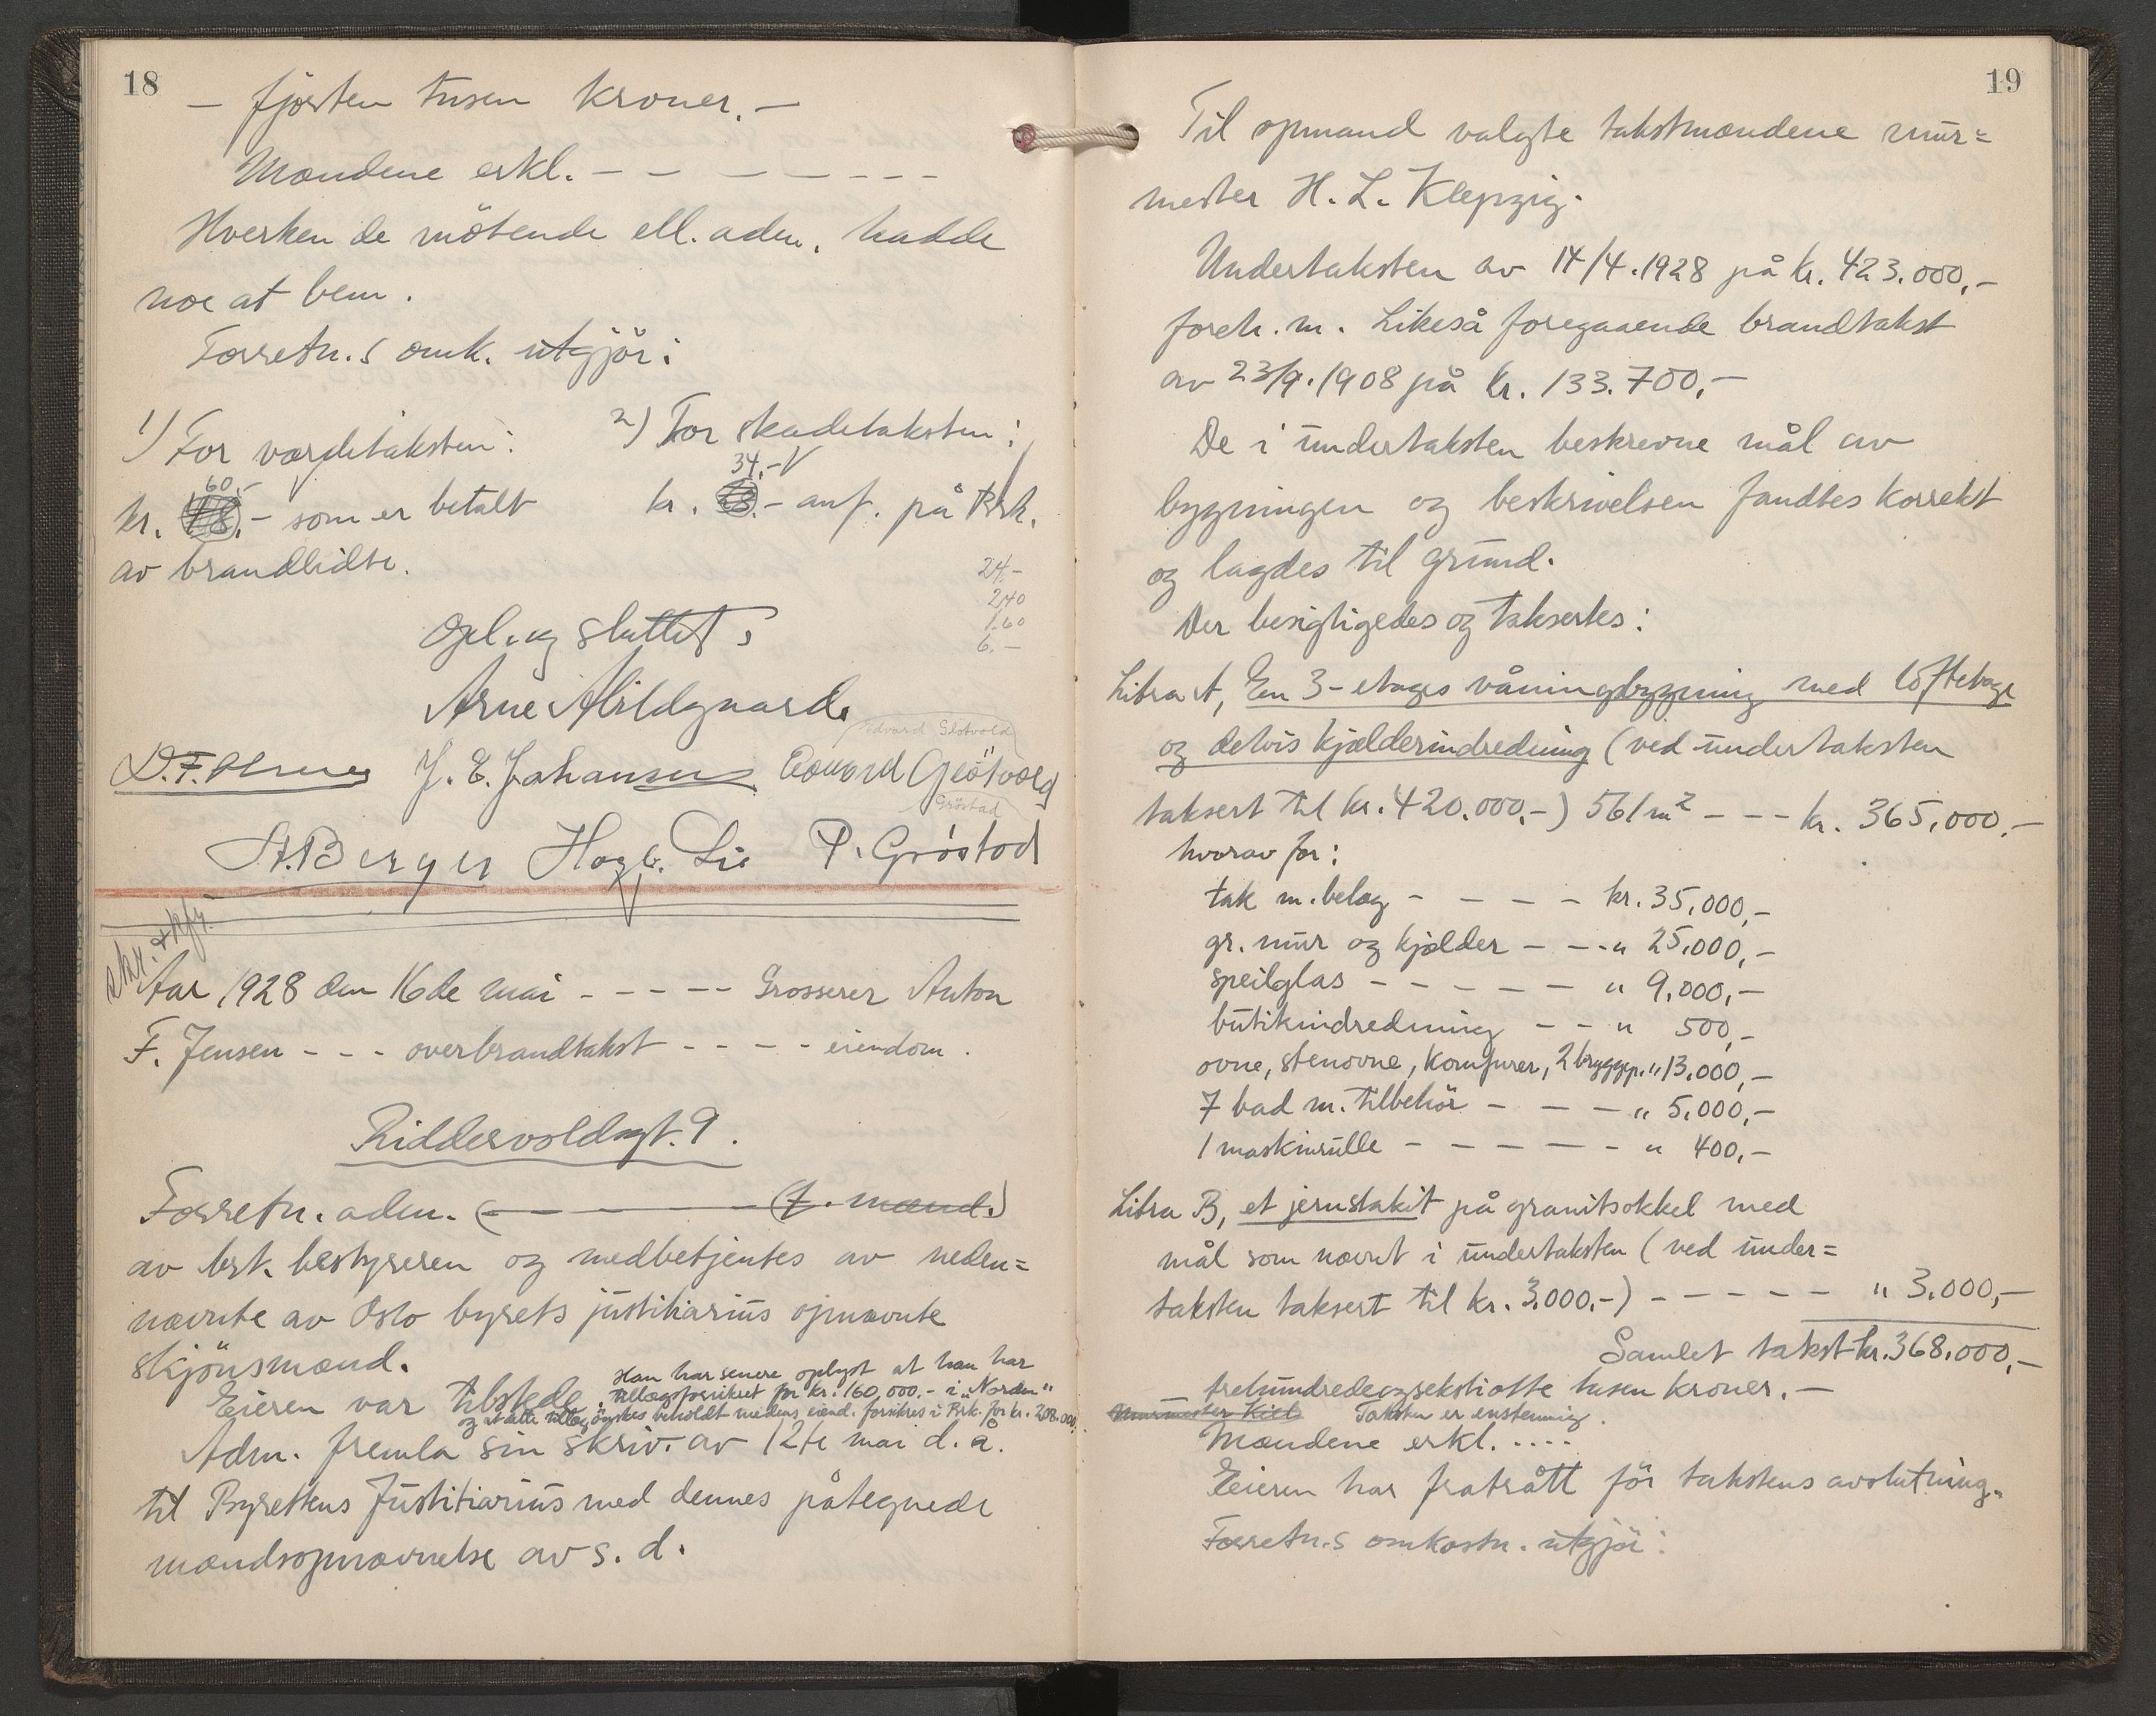 18
— fjorten tusen kroner. —
Mændene erkl. — — — — — — —
Hverken de mötende ell. adm. hadde
noe at bem.
Forretn.s omk. utgjör:
1) For værditaksten:
60,-
kr. 18,- som er betalt
av brandlidte.
2) For skadetaksten:
34,- V
kr. 18.- anf. på Brk.
24.-
2.40
1.60
6.—
Opl. og sluttet
Arne Abildgaard.
Edvard Glötvold
D. F. Olsen J. E. Johansen Edvard Glötvold
Gröstad
St. Berger Hagb. Lie P. Gröstad
skr. & kfr.
Aar 1928 den 16de mai - - - - - Grosserer Anton
F. Jensen - - - overbrandtakst - - - - - eiendom.
Riddervoldsgt. 9.
Forretn. adm. (— — — — — (4. mænd.)
av brk. bestyreren og medbetjentes av neden=
nævnte av Oslo byrets justitiarius opnævnte
skjönsmænd.
Eieren var tilstede. Han har senere oplyst at han har
tillægsforsikret for kr. 160,000.- i "Norden"
og at dette tillæg önskes beholdt medens eiend. forsikres i Brk. for kr. 208.000.
Adm. fremla sin skriv. av 12te mai d. å.
til Byrettens Justitiarius med dennes påtegnede
mændsopnævnelse av s. d.
19
Til opmand valgte takstmændene mur=
mester H. L. Klepzig.
Undertaksten av 14/4.1928 på kr. 423.000,-
foreh. m. Likeså foregaaende brandtakst
av 23/9.1908 på kr. 133.700,-
De i undertaksten beskrevne mål av
bygningen og beskrivelsen fandtes korrekt
og lagdes til grund.
Der besigtigedes og taksertes:
Litra A, En 3-etages våningsbygning med loftetage
og delvis kjælderindredning (ved undertaksten
taksert til kr. 420.000,-) 561 m² - - - kr. 365,000.—
hvorav for:
tak m. belæg - - - - - kr. 35,000,-
gr. mur og kjælder - - - " 25.000,-
speilglas - - - - - - " 9,000,-
butikindredning - - " 500,-
ovne, stenovne, komfurer, 2 bryggep. " 13.000,-
7 bad m. tilbehör - - - - " 5.000,-
1 maskinrulle - - - - - - " 400,-
Litra B, et jernstakit på granitsokkel med
mål som nævnt i undertaksten (ved under=
taksten taksert til kr. 3.000.-) - - - - - " 3.000,-
Samlet takst kr. 368.000,-
— trehundredeogsekstiotte tusen kroner. —
Murmester Taksten er enstemmig.
Mændene erkl. ....
Eieren har fratrått för takstens avslutning.
Forretn.s omkostn. utgjör: